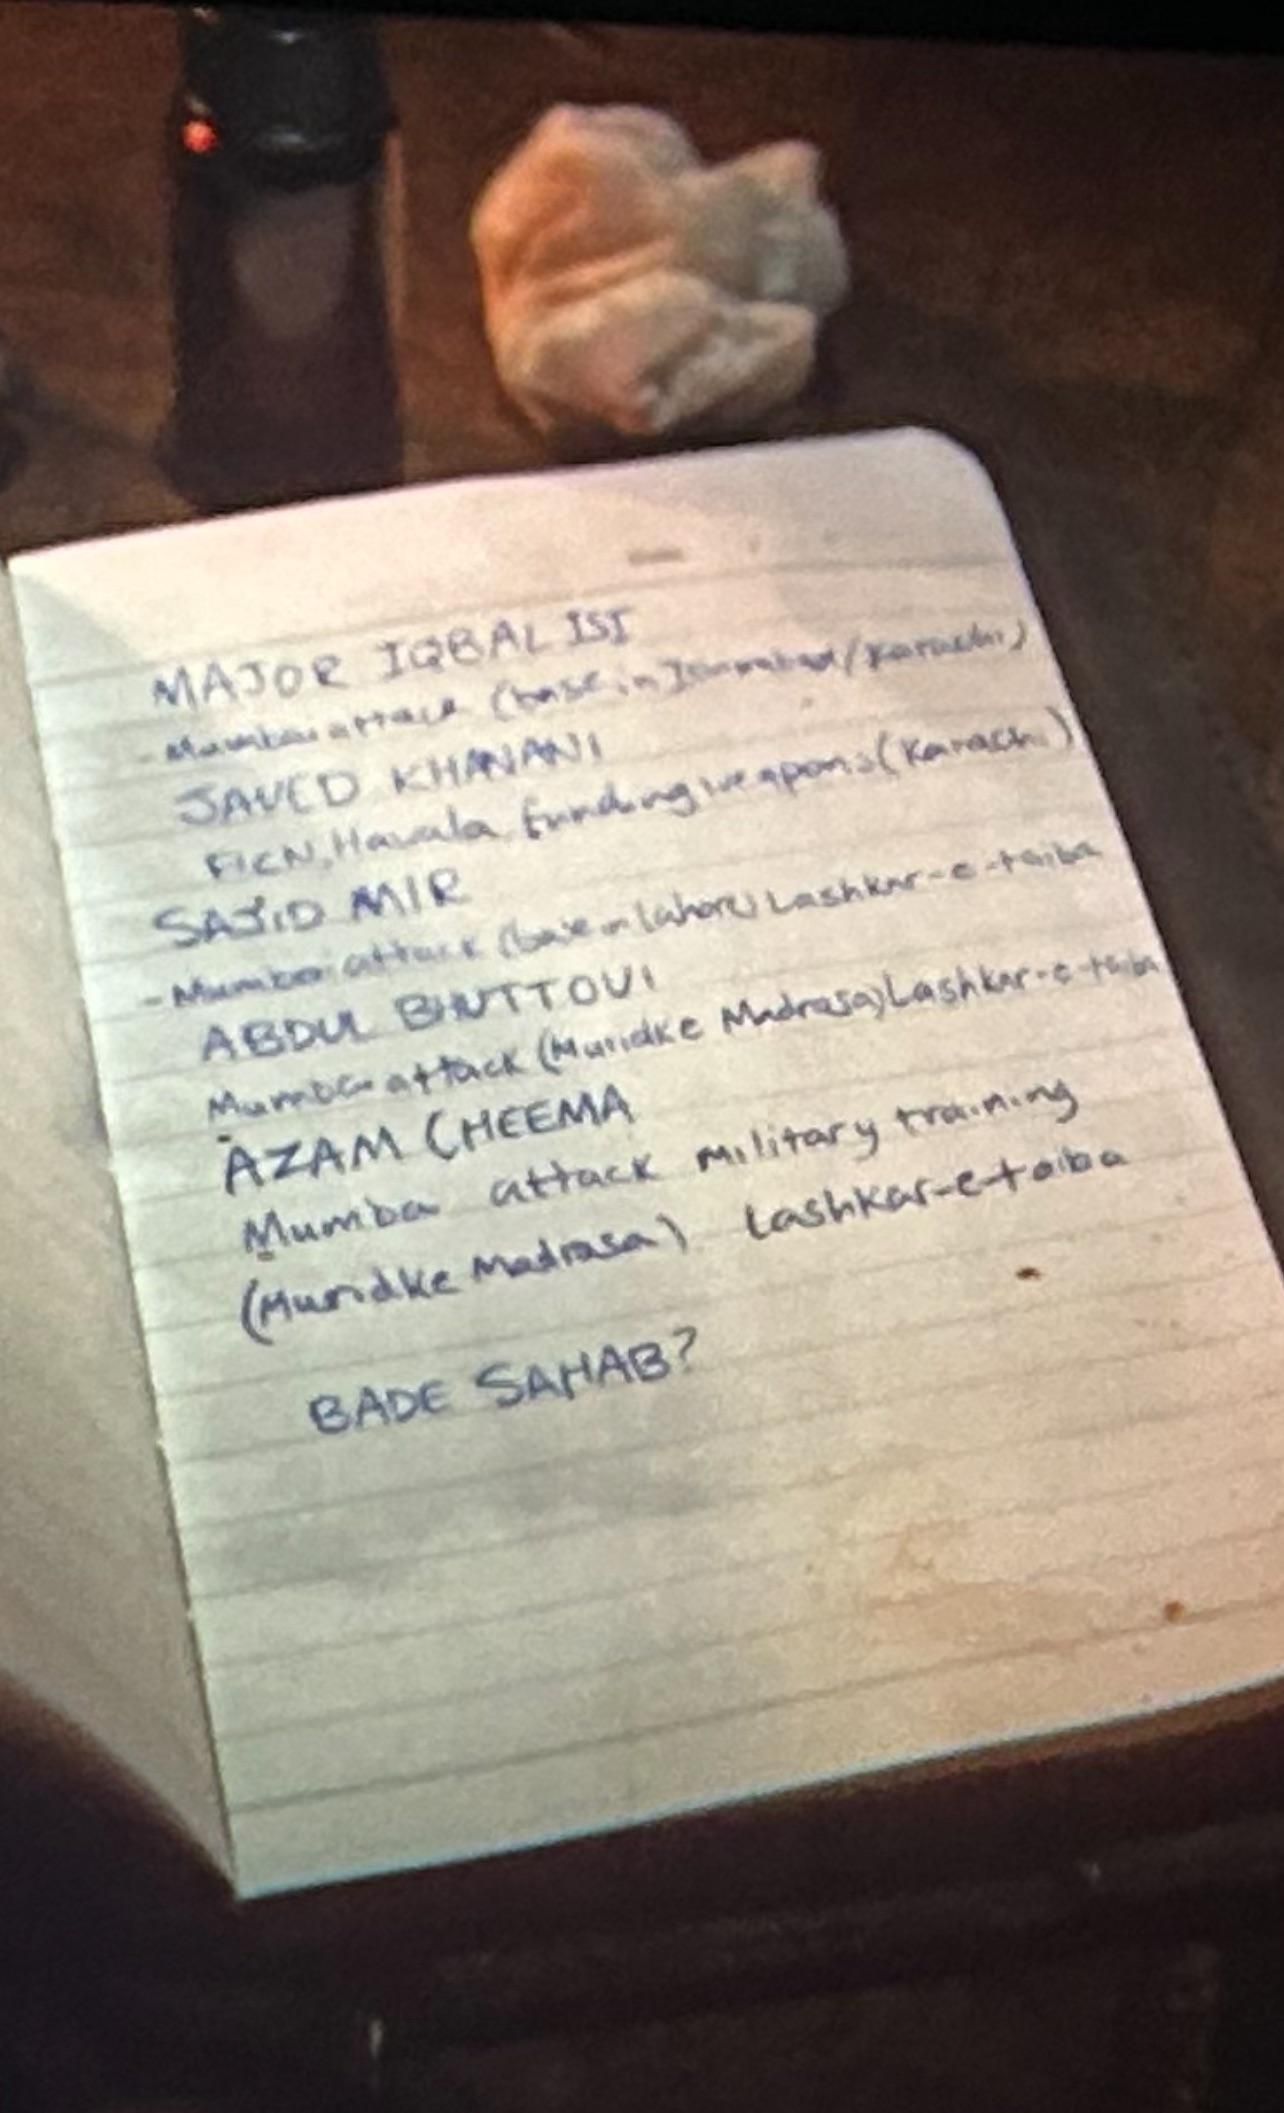 MAJOR IQBAL ISI
- Mumbai attack (base in Islamabad/Karachi)
JAVED KHANANI
FICN, Hawala funding weapons (Karachi)
SAJID MIR
- Mumbai attack (base in lahore) Lashkar-e-taiba
ABDUL BHUTTOVI
Mumbai attack (Muridke Madrasa) Lashkar-e-taiba
AZAM CHEEMA
Mumbai attack Military training
(Muridke Madrasa) Lashkar-e-taiba
BADE SAHAB?